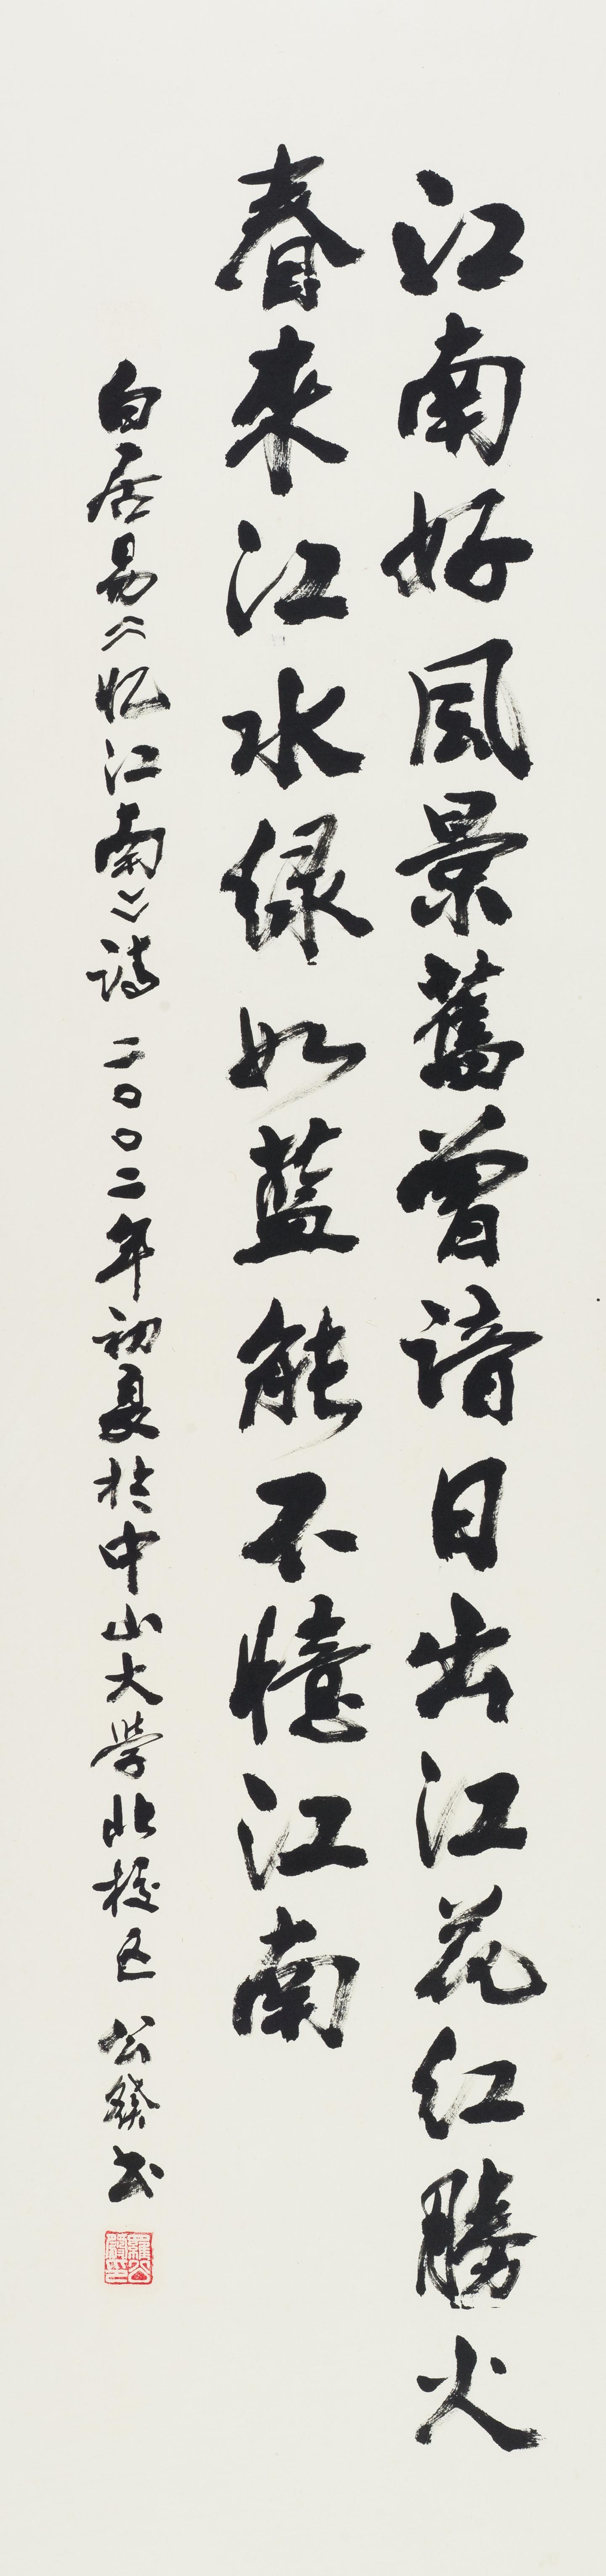 江南好風景舊曾諳日出江花紅勝火
春來江水緑如藍能不憶江南
白居易《忆江南》詩 二〇〇二年初夏於中山大學北校区 公發书